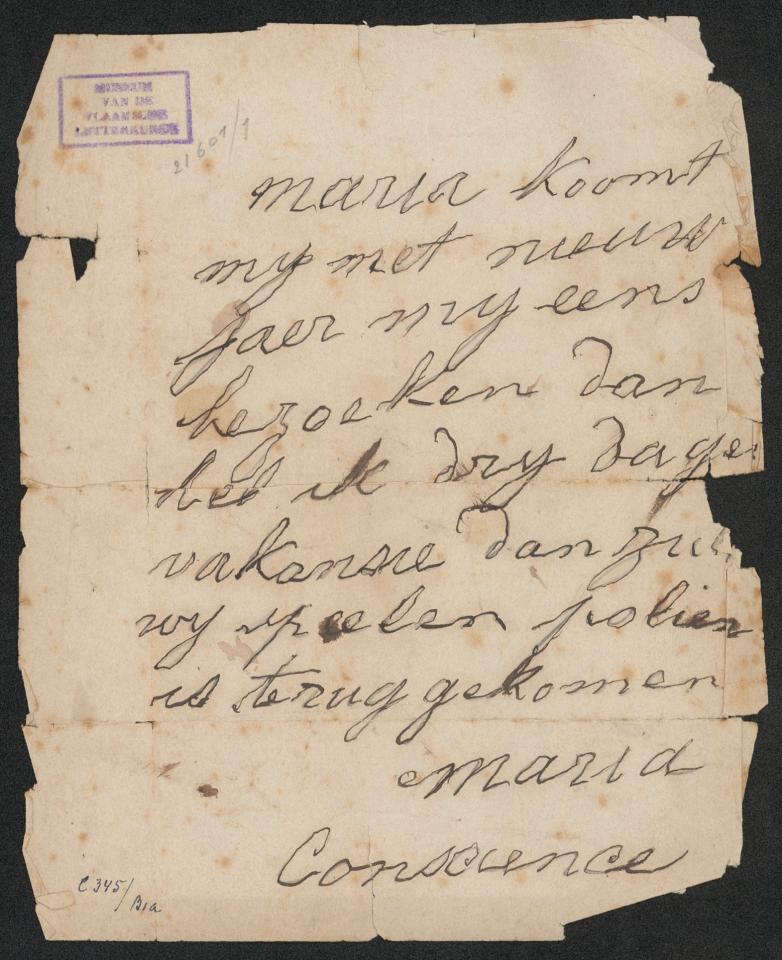 MUSEUM
VAN DE
VLAAMSCHE
LETTERKUNDE
21601/1
maria koomt
my met nieuw
jaer my eens
bezoeken dan
heb ik dry dage
vakansie dan zul
wy speelen polien
is terug gekomen
maria
Conscience
C 345/
B1a